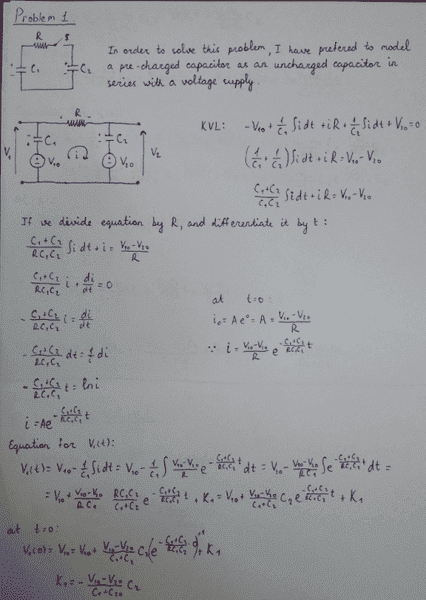 Problem 1
R S
C₁ C₂
In order to solve this problem, I have prefered to model
a pre-charged capacitor as an uncharged capacitor in
series with a voltage supply.
R
V₁ C₁ V₁₀ i C₂ V₂₀ V₂
KVL: -V₁₀ + 1/C₁ ∫i dt + iR + 1/C₂ ∫i dt + V₂₀ = 0
(1/C₁ + 1/C₂) ∫i dt + iR = V₁₀ - V₂₀
(C₁+C₂)/(C₁C₂) ∫i dt + iR = V₁₀ - V₂₀
If we devide equation by R, and differentiate it by t:
(C₁+C₂)/(RC₁C₂) ∫i dt + i = (V₁₀-V₂₀)/R
(C₁+C₂)/(RC₁C₂) i + di/dt = 0
-(C₁+C₂)/(RC₁C₂) i = di/dt
-(C₁+C₂)/(RC₁C₂) dt = 1/i di
-(C₁+C₂)/(RC₁C₂) t = ln i
i = Ae^(-(C₁+C₂)/(RC₁C₂) t)
at t=0:
i₀ = Ae⁰ = A = (V₁₀-V₂₀)/R
∵ i = (V₁₀-V₂₀)/R e^(-(C₁+C₂)/(RC₁C₂) t)
Equation for V₁(t):
V₁(t) = V₁₀ - 1/C₁ ∫i dt = V₁₀ - 1/C₁ ∫ (V₁₀-V₂₀)/R e^(-(C₁+C₂)/(RC₁C₂) t) dt = V₁₀ - (V₁₀-V₂₀)/(RC₁) ∫e^(-(C₁+C₂)/(RC₁C₂) t) dt =
= V₁₀ + (V₁₀-V₂₀)/(RC₁) (RC₁C₂)/(C₁+C₂) e^(-(C₁+C₂)/(RC₁C₂) t) + K₁ = V₁₀ + (V₁₀-V₂₀)/(C₁+C₂) C₂ e^(-(C₁+C₂)/(RC₁C₂) t) + K₁
at t=0:
V₁(0) = V₁₀ = V₁₀ + (V₁₀-V₂₀)/(C₁+C₂) C₂ (e^(-(C₁+C₂)/(RC₁C₂) 0))¹ + K₁
K₁ = -(V₁₀-V₂₀)/(C₁+C₂₀) C₂